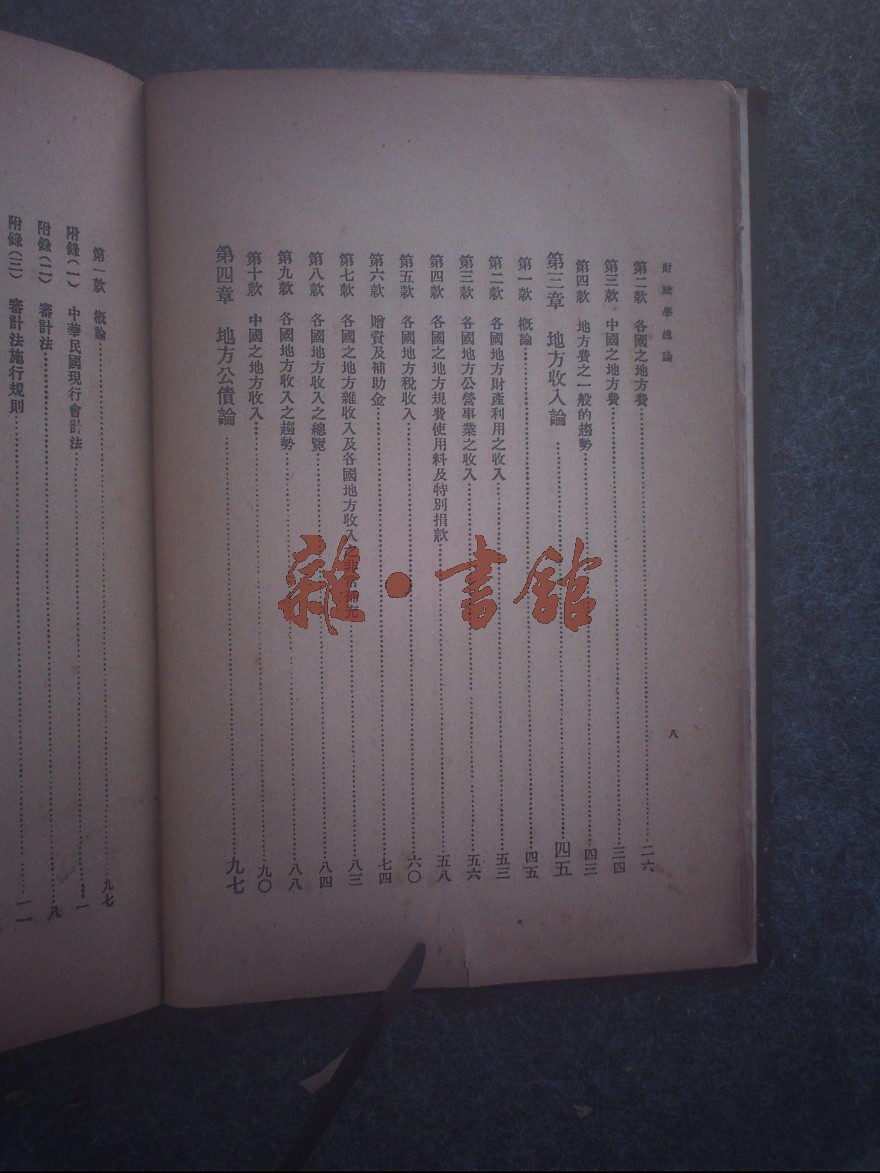 財政學總論
八
第二款　各國之地方費……二六
第三款　中國之地方費……三四
第四款　地方費之一般的趨勢……四三
第三章　地方收入論……四五
第一款　概論……四五
第二款　各國地方財產利用之收入……五三
第三款　各國地方公營事業之收入……五六
第四款　各國之地方規費使用料及特別捐款……五八
第五款　各國地方稅收入……六〇
第六款　贈資及補助金……七四
第七款　各國之地方雜收入及各國地方收入……八三
第八款　各國地方收入之總覽……八四
第九款　各國地方收入之趨勢……八八
第十款　中國之地方收入……九〇
第四章　地方公債論……九七
第一款　概論……九七
附錄(一)　中華民國現行會計法……一
附錄(二)　審計法……八
附錄(三)　審計法施行規則……一一
雜·書館